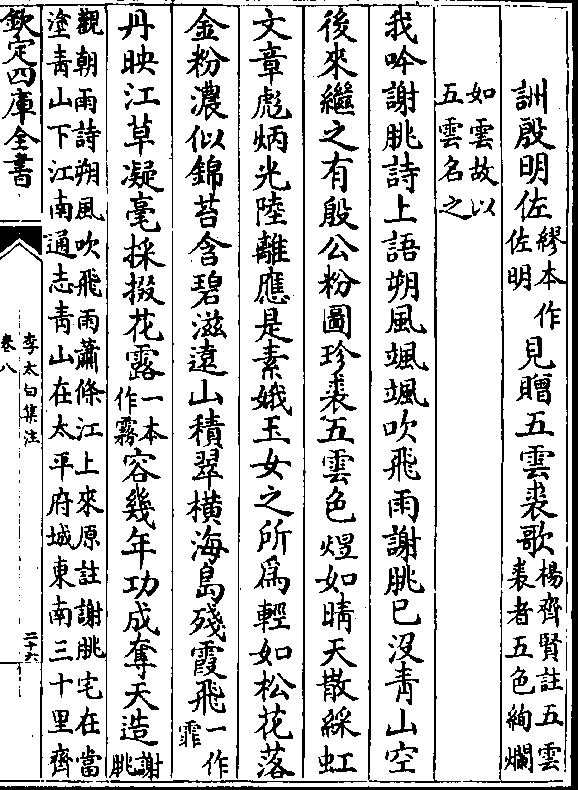 詶殷明佐繆本作佐明見贈五雲裘歌楊齊賢註五雲裘者五色絢爛
如雲故以五雲名之
我吟謝朓詩上語朔風颯颯吹飛雨謝朓已没青山空
後來繼之有殷公粉圖珍裘五雲色煜如晴天散綵虹
文章彪炳光陸離應是素娥玉女之所爲輕如松花落
金粉濃似錦苔含碧滋遠山積翠横海島殘霞飛一作霏
丹映江草凝毫採掇花露一本作霧容幾年功成奪天造謝朓
觀朝雨詩朔風吹飛雨蕭條江上來原註謝朓宅在當
塗青山下江南通志青山在太平府城東南三十里齊
欽定四庫全書
李太白集注
卷八
二十六